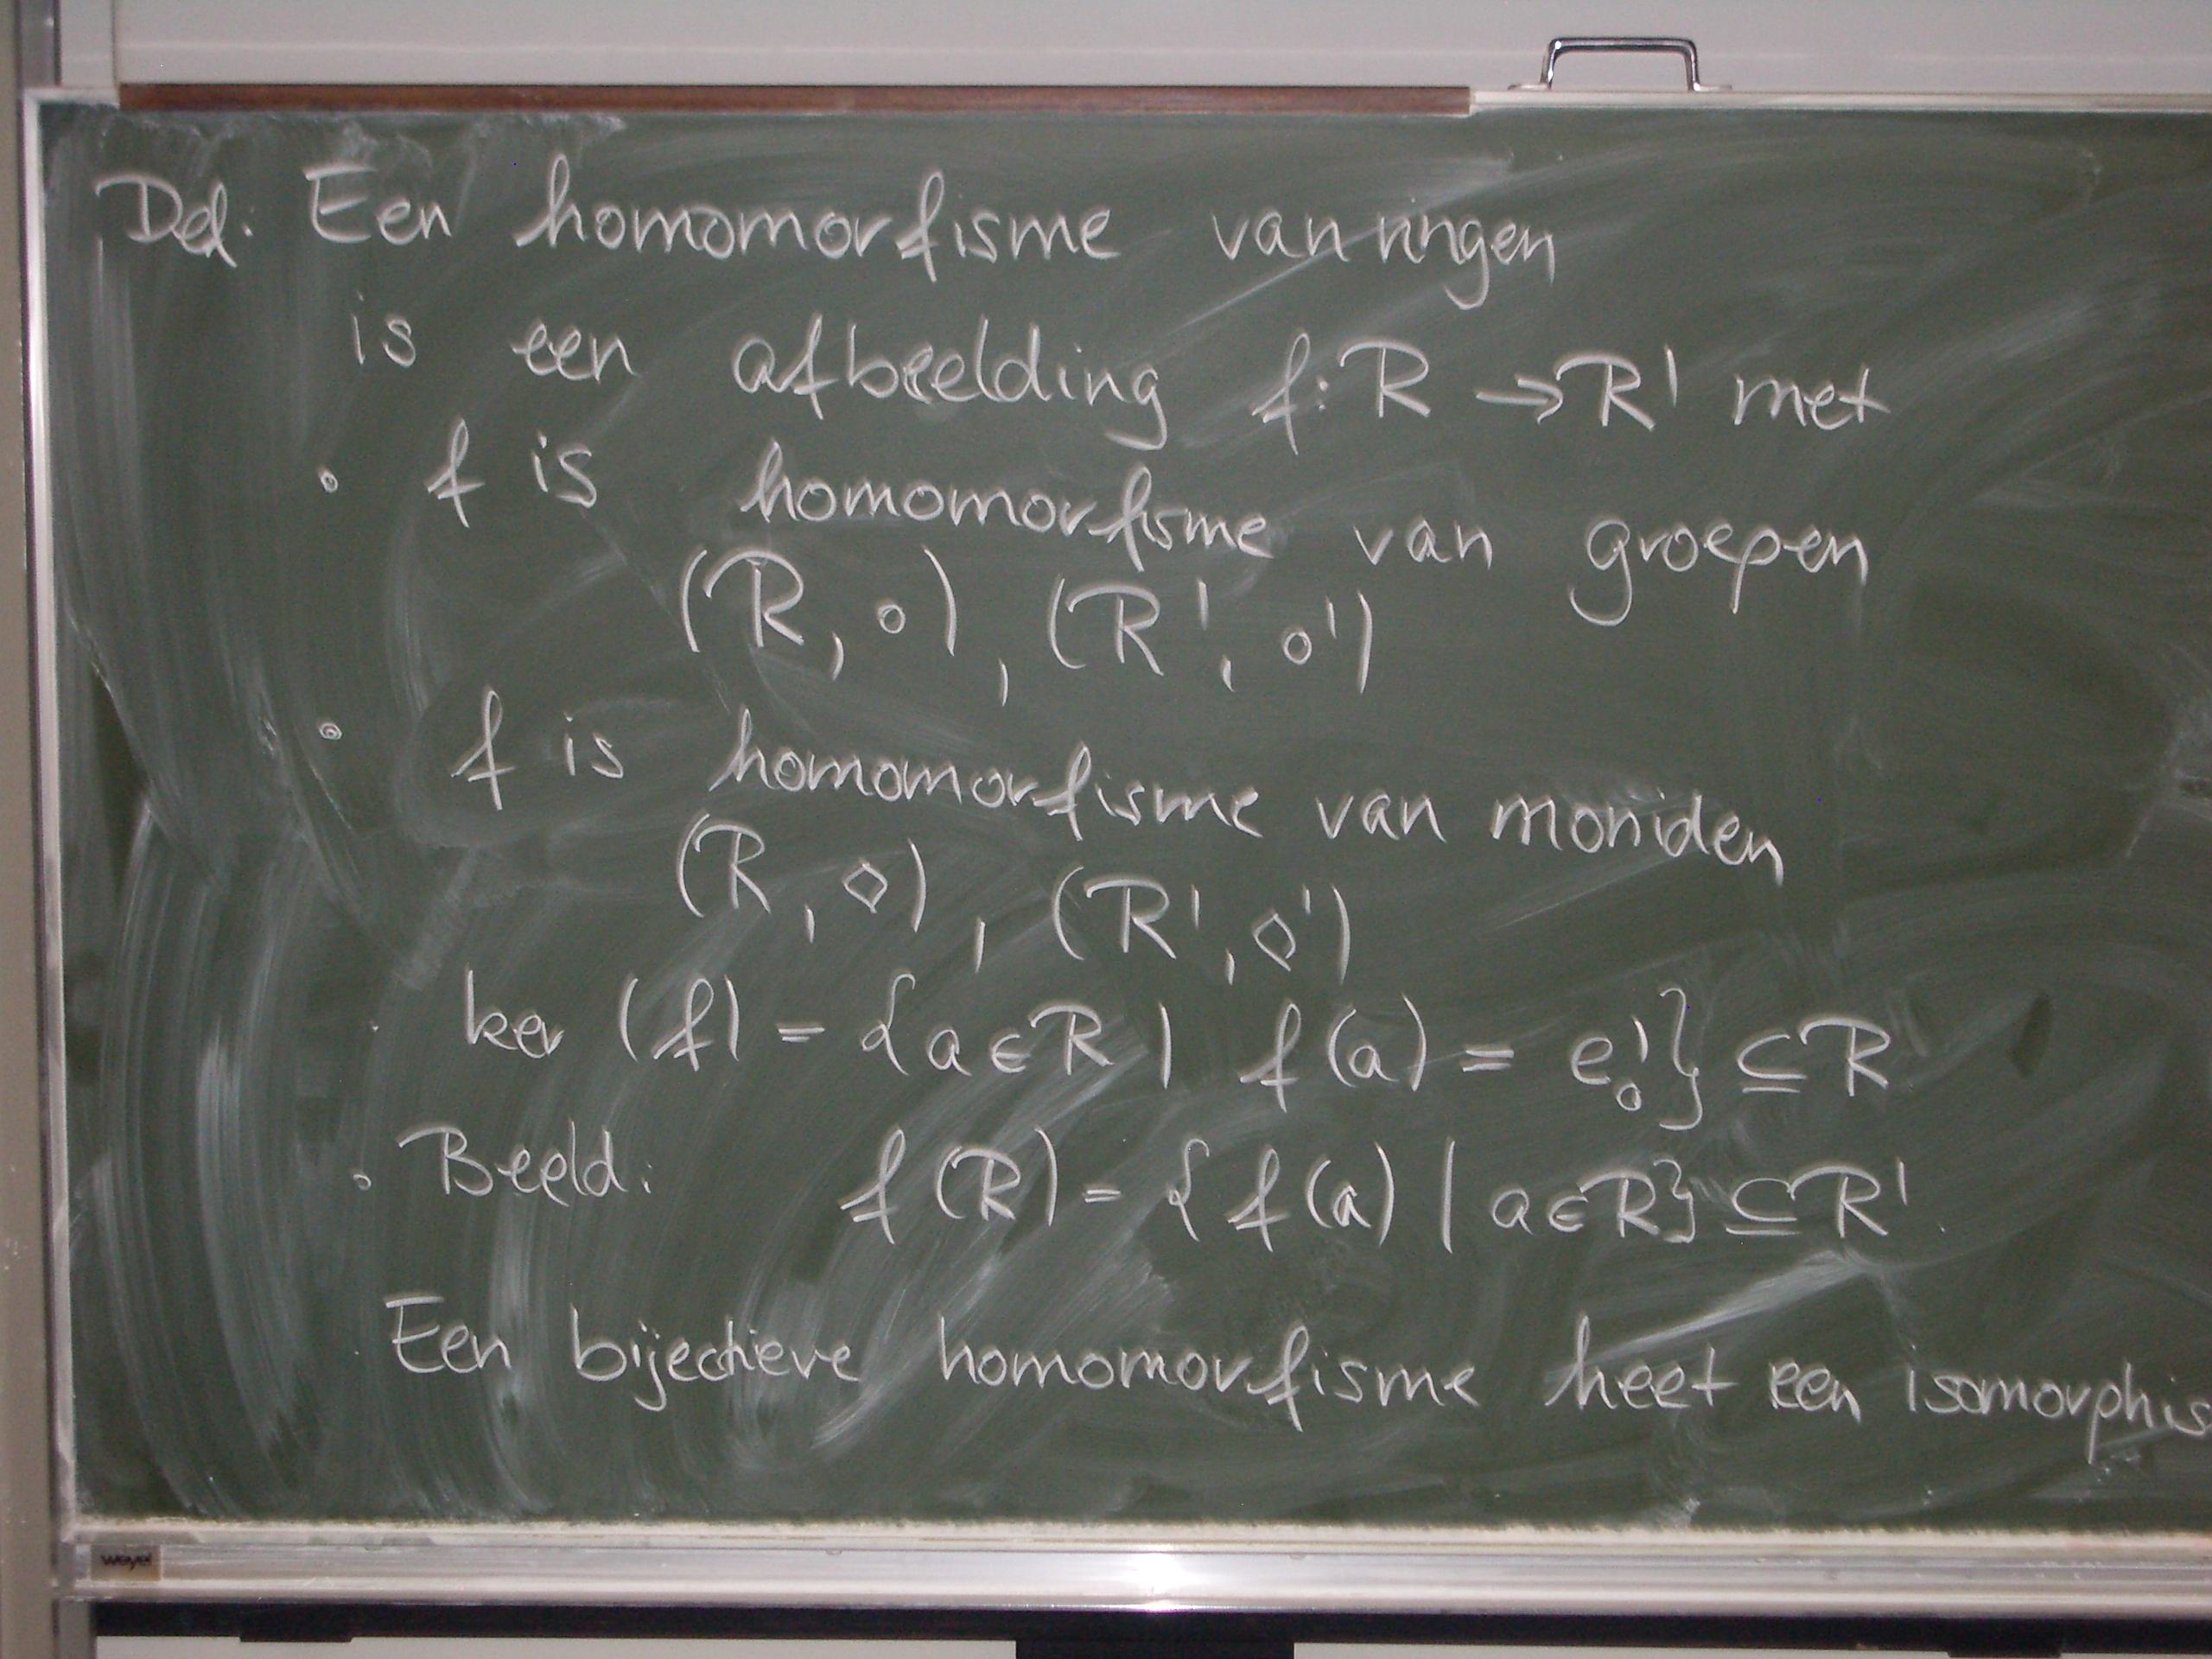 Def. Een homomorfisme van ringen
is een afbeelding f: R → R' met
• f is homomorfisme van groepen
(R, ∘), (R', ∘')
• f is homomorfisme van moniden
(R, ◇), (R', ◇')
• ker (f) = {a ∈ R | f(a) = e'∘} ⊆ R
• Beeld: f(R) = {f(a) | a ∈ R} ⊆ R'.
Een bijectieve homomorfisme heet een isomorphis
weyel